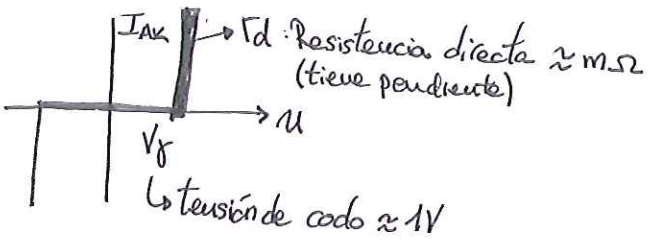 I_AK
r_d : Resistencia directa ≈ mΩ
(tiene pendiente)
u
V_γ
↳ tensión de codo ≈ 1V